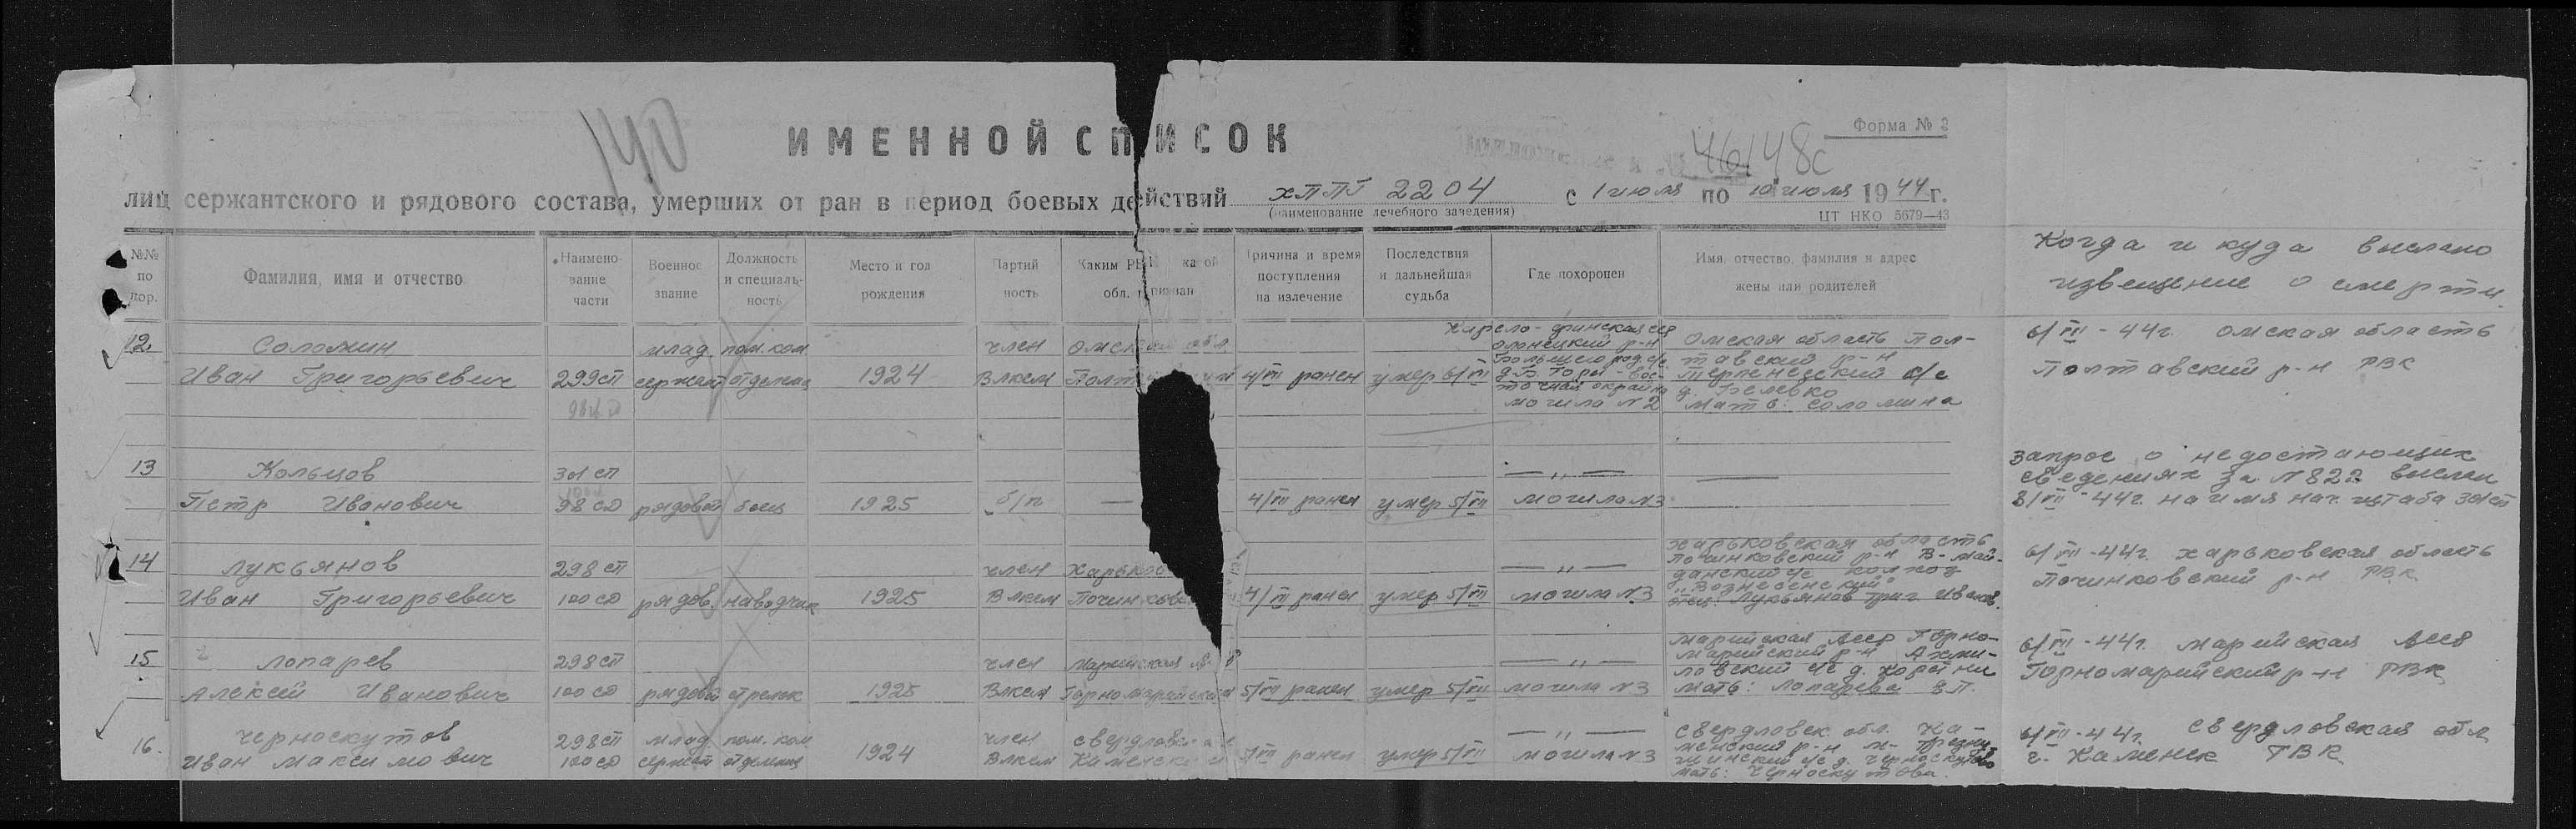 140
ИМЕННОЙ СПИСОК
Форма № 2
46148с
лиц сержантского и рядового состава, умерших от ран в период боевых действий ХППГ 2204 с 1 июля по 10 июля 1944 г.
(наименование лечебного заведения)
ЦТ НКО 5679—43
№№ по пор.
Фамилия, имя и отчество
Наименование части
Военное звание
Должность и специальность
Место и год рождения
Партийность
Каким РВК какой обл. призван
Причина и время поступления на излечение
Последствия и дальнейшая судьба
Где похоронен
Имя, отчество, фамилия и адрес жены или родителей
Когда и куда выслано
извещение о смерти.
12 Соломин
Иван Григорьевич
299 сп
98 сд
млад. сержант
пом. ком. отделен
1924
член ВЛКСМ
Омской обл
4/VII ранен
умер 6/VII
Карело-финская сср
олонецкий р-н
д. Б. Горы - вос-
точная окраина
могила N 2
Омская область Пол-
тавский р-н
с/с
мать: Соломина
6/VII - 44г. Омская область
Полтавский р-н РВК
13 Кольцов
Петр Иванович
301 сп
98 сд
рядовой
боец
1925
б/п
—
4/VII ранен
умер 5/VII
— „ —
могила N 3
—
запрос о недостающих
сведениях за N 822 выслан
8/VII - 44г. на имя нач. штаба 301 сп
14 Лукьянов
Иван Григорьевич
298 сп
100 сд
рядов.
наводчик
1925
член ВЛКСМ
4/VII ранен
умер 5/VII
— „ —
могила N 3
Харьковская область
Починковский р-н В-Май-
данский с/с колхоз
„Вознесенский"
отец: Лукьянов Григ. Иванов.
6/VII - 44г. Харьковская область
Починковский р-н РВК
15 Лопарев
Алексей Иванович
298 сп
100 сд
рядовой
стрелок
1925
член ВЛКСМ
Марийская
Горномарийский
5/VII ранен
умер 5/VII
— „ —
могила N 3
Марийская Асср Горно-
марийский р-н
с/с д.
мать: Лопарева
6/VII - 44г. Марийская Асср
Горномарийский р-н РВК
16. Черноскутов
Иван Максимович
298 сп
100 сд
млад. сержант
пом. ком. отделения
1924
член ВЛКСМ
5/VII ранен
умер 5/VII
— „ —
могила N 3
Свердловск. обл. Ка-
менский р-н
с/с д.
мать: Черноскутова
6/VII - 44г. Свердловская обл
г. Каменск ГВК